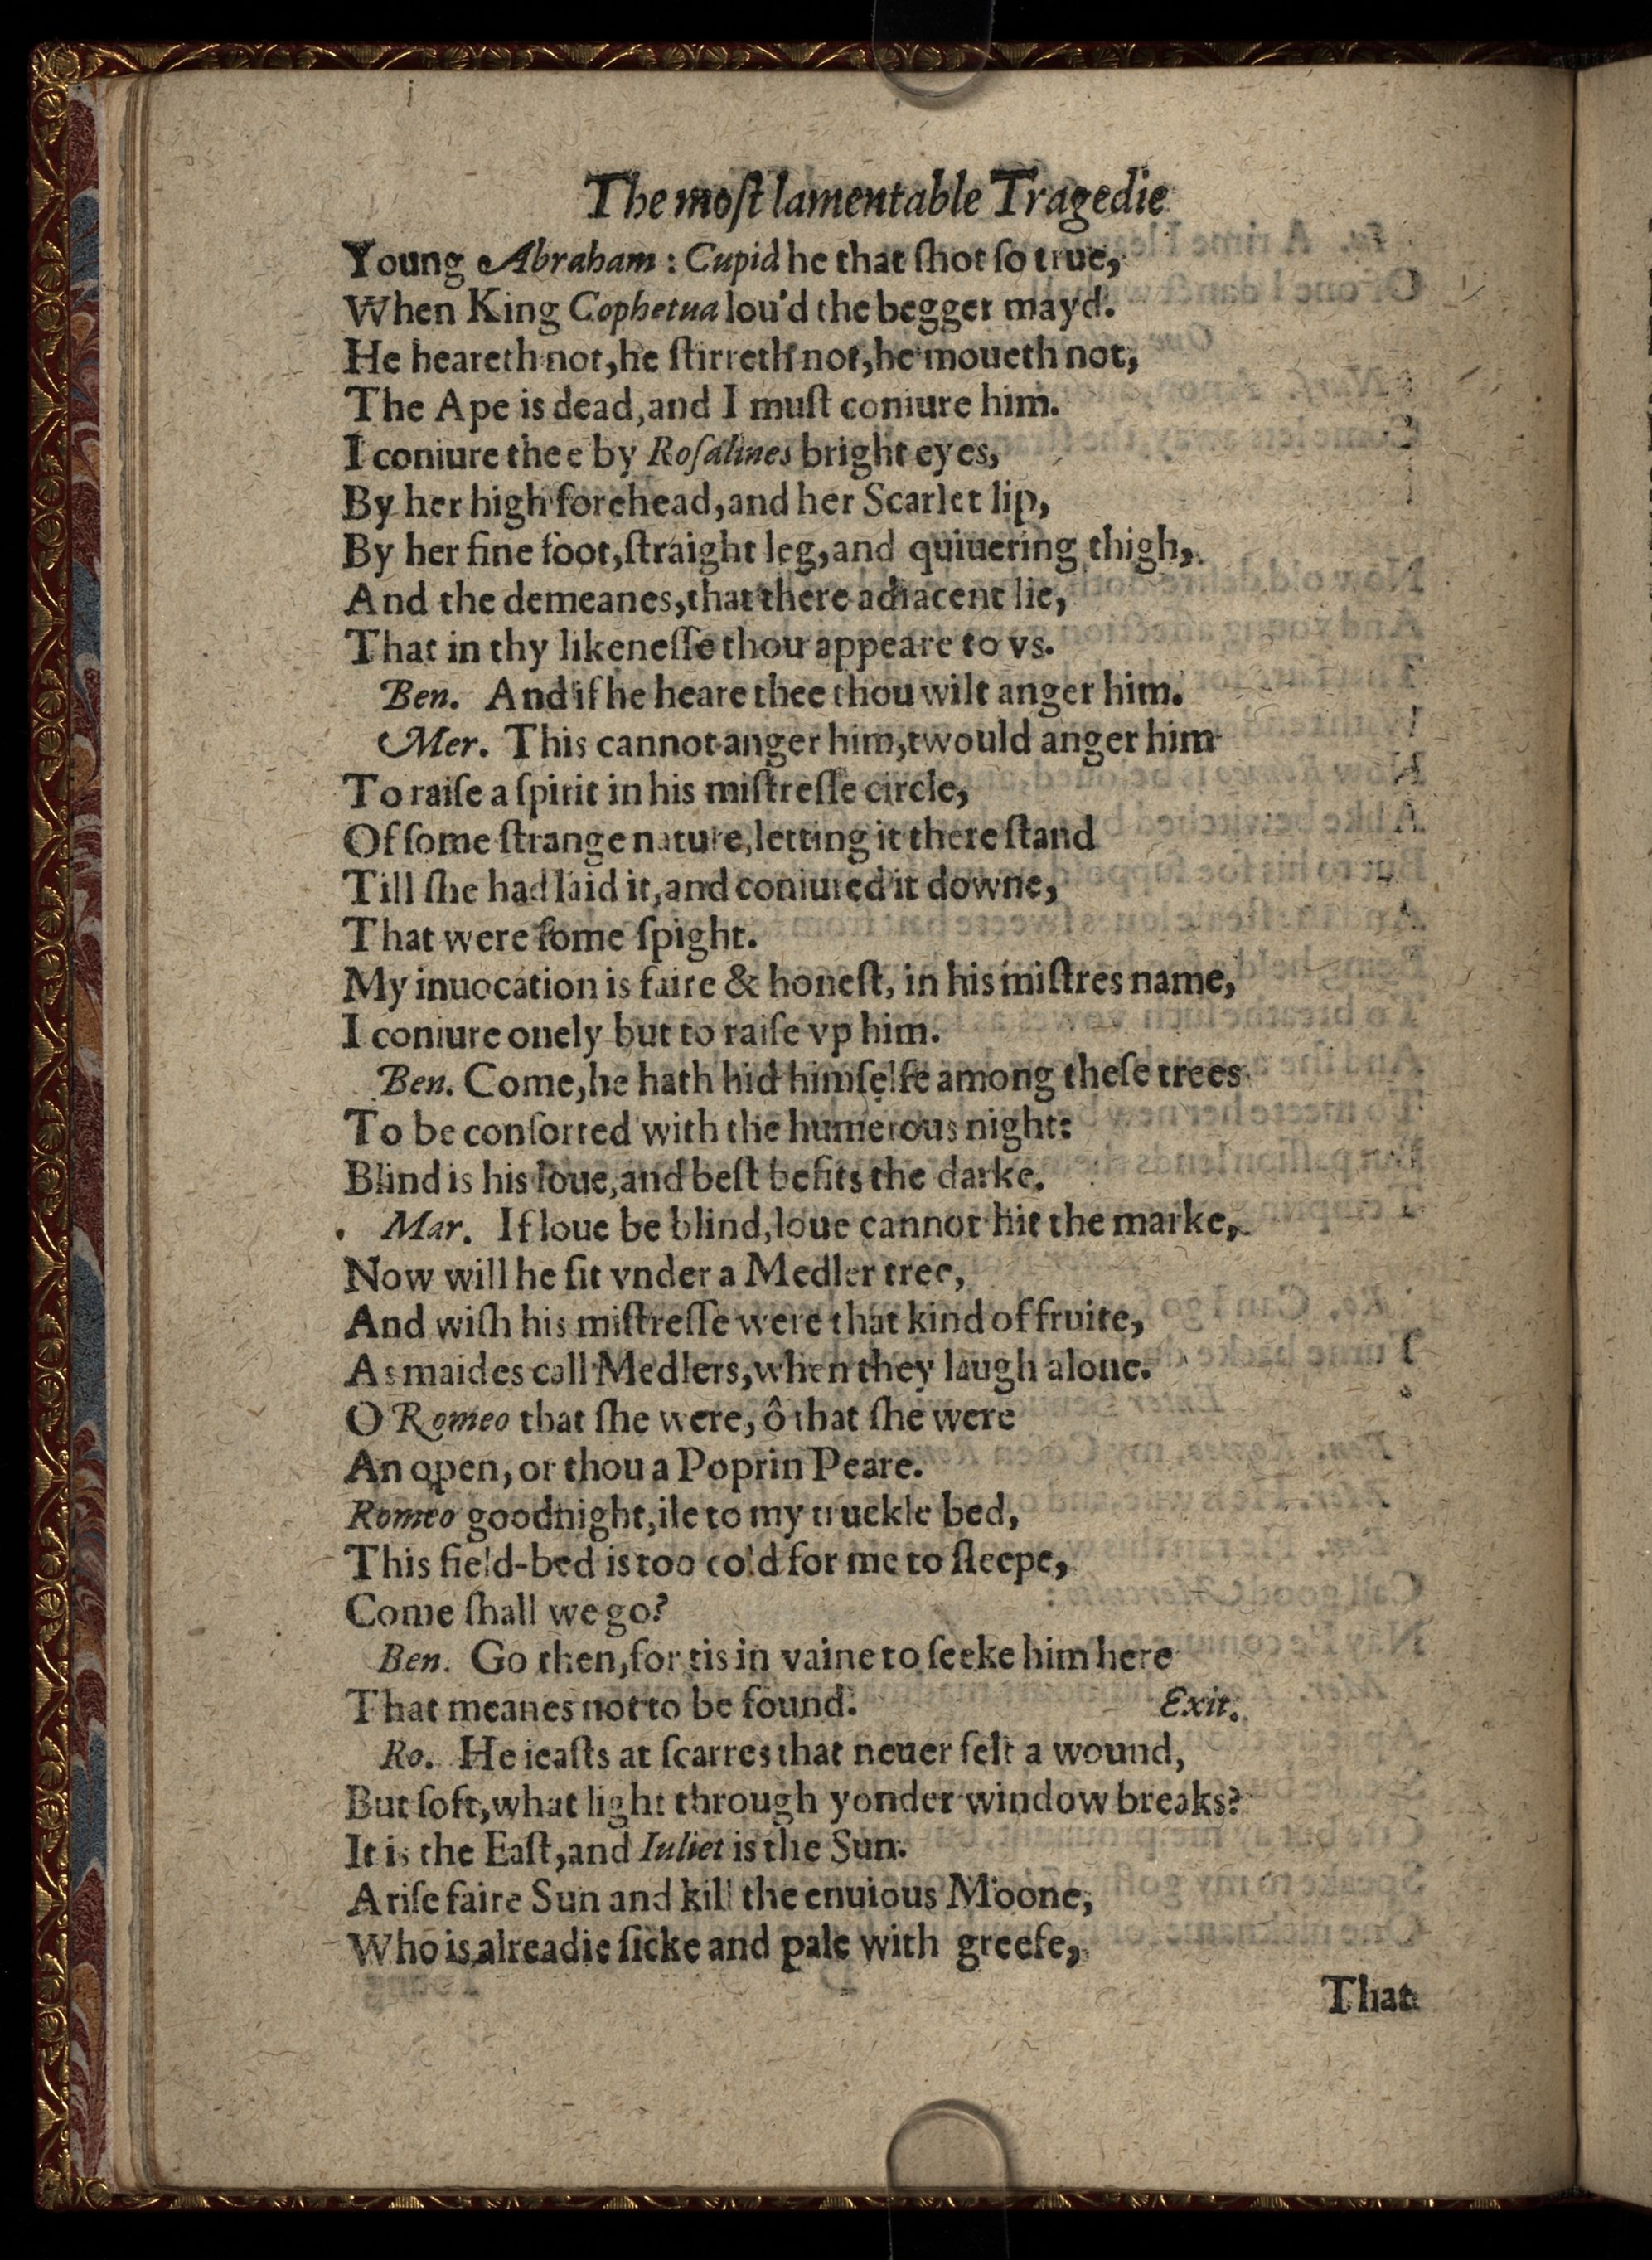 The moſt lamentable Tragedie
Young Abraham: Cupid he that ſhot ſo true,
When King Cophetua lou'd the begger mayd.
He heareth not, he ſtirreth not, he moueth not,
The Ape is dead, and I muſt coniure him.
I coniure thee by Roſalines bright eyes,
By her high forehead, and her Scarlet lip,
By her fine foot, ſtraight leg, and quiuering thigh,
And the demeanes, that there adiacent lie,
That in thy likeneſſe thou appeare to vs.
Ben. And if he heare thee thou wilt anger him.
Mer. This cannot anger him, twould anger him
To raiſe a ſpirit in his miſtreſſe circle,
Of ſome ſtrange nature, letting it there ſtand
Till ſhe had laid it, and coniured it downe,
That were ſome ſpight.
My inuocation is faire & honeſt, in his miſtres name,
I coniure onely but to raiſe vp him.
Ben. Come, he hath hid himſelfe among theſe trees
To be conſorted with the humerous night:
Blind is his loue, and beſt befits the darke.
Mar. If loue be blind, loue cannot hit the marke,
Now will he ſit vnder a Medler tree,
And wiſh his miſtreſſe were that kind of fruite,
As maides call Medlers, when they laugh alone.
O Romeo that ſhe were, ô that ſhe were
An open, or thou a Poprin Peare.
Romeo goodnight, ile to my truckle bed,
This field-bed is too cold for me to ſleepe,
Come ſhall we go?
Ben. Go then, for tis in vaine to ſeeke him here
That meanes not to be found. Exit.
Ro. He ieaſts at ſcarres that neuer felt a wound,
But ſoft, what light through yonder window breaks?
It is the Eaſt, and Iuliet is the Sun.
Ariſe faire Sun and kill the enuious Moone,
Who is alreadie ſicke and pale with greefe,
That